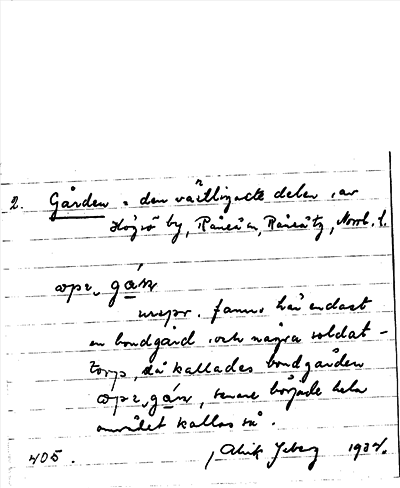 2. Gården, den nordligaste delen av
Högsö by, Råneå sn, Råneå tg, Norrb. l.
opr. gán
urspr. fanns här endast
en bondgård och några soldat-
torp, då kallades bondgården
opr. gán, senare började hela
området kallas så.
405. 1932.